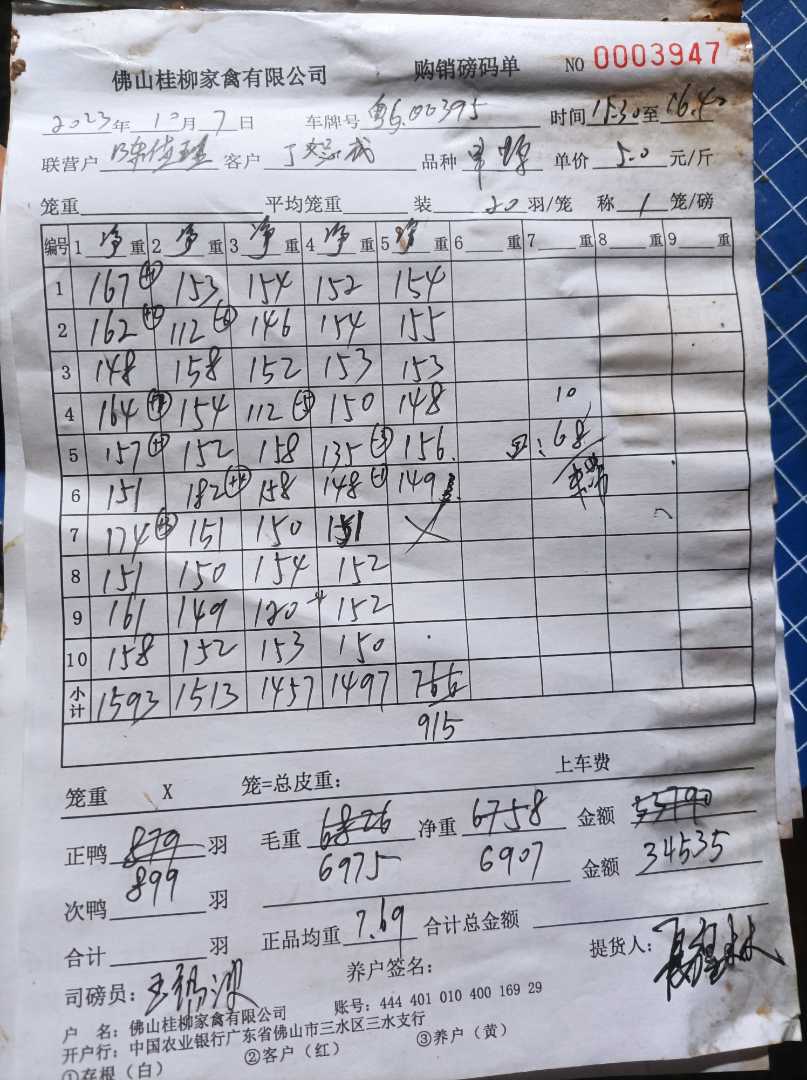 佛山桂柳家禽有限公司 购销磅码单 NO 0003947
2023年 10月 7日 车牌号 00395 时间 15:30至 16:40
联营户 客户 品种 单价 5.0 元/斤
笼重 平均笼重 装 20 羽/笼 称 1 笼/磅
编号 1 净 重 2 净 重 3 净 重 4 净 重 5 净 重 6 重 7 重 8 重 9 重
1 167 153 154 152 154
2 162 112 146 154 155
3 148 158 152 153 153
4 164 154 112 150 148 10
5 157 152 158 135 156 68
6 151 182 158 148 149
7 174 151 150 151
8 151 150 154 152
9 161 149 120 152
10 158 152 153 150
小计 1593 1513 1457 1497 766
915
笼重 X 笼=总皮重: 上车费
正鸭 879 羽 毛重 6826 净重 6758 金额
899 6975 6907 金额 34535
次鸭 羽
合计 羽 正品均重 7.69 合计总金额
司磅员: 养户签名: 提货人:
户 名: 佛山桂柳家禽有限公司 账号: 444 401 010 400 169 29
开户行: 中国农业银行广东省佛山市三水区三水支行
①存根(白) ②客户(红) ③养户(黄)